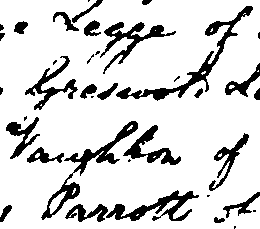 Legge of
Greswold
Vaughton of
Parrott of